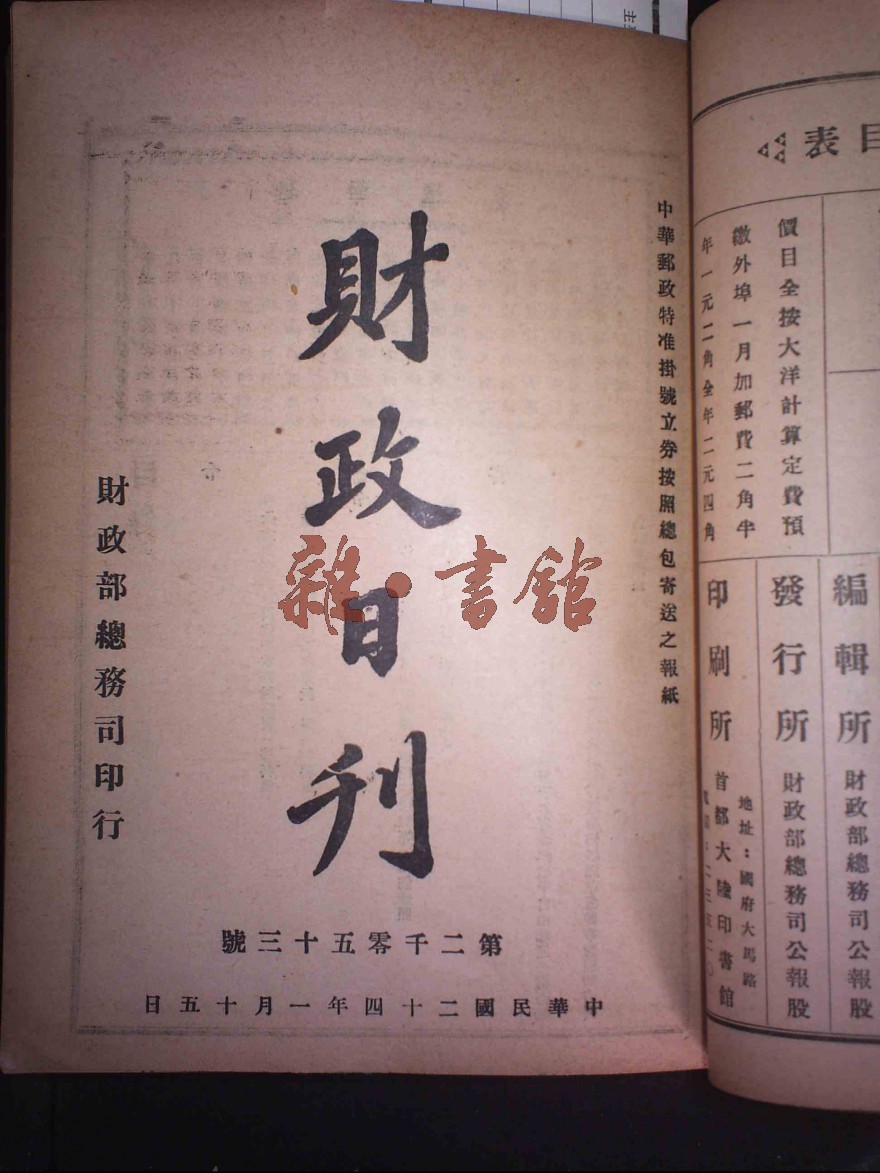 中華郵政特准掛號立券按照總包寄送之報紙
財政日刊
財政部總務司印行
第二千零五十三號
中華民國二十四年一月十五日
雜·書館
目表
價目全按大洋計算定費預
繳外埠一月加郵費二角半
年一元二角全年二元四角
編輯所 財政部總務司公報股
發行所 財政部總務司公報股
印刷所 首都大陸印書館
地址：國府大馬路